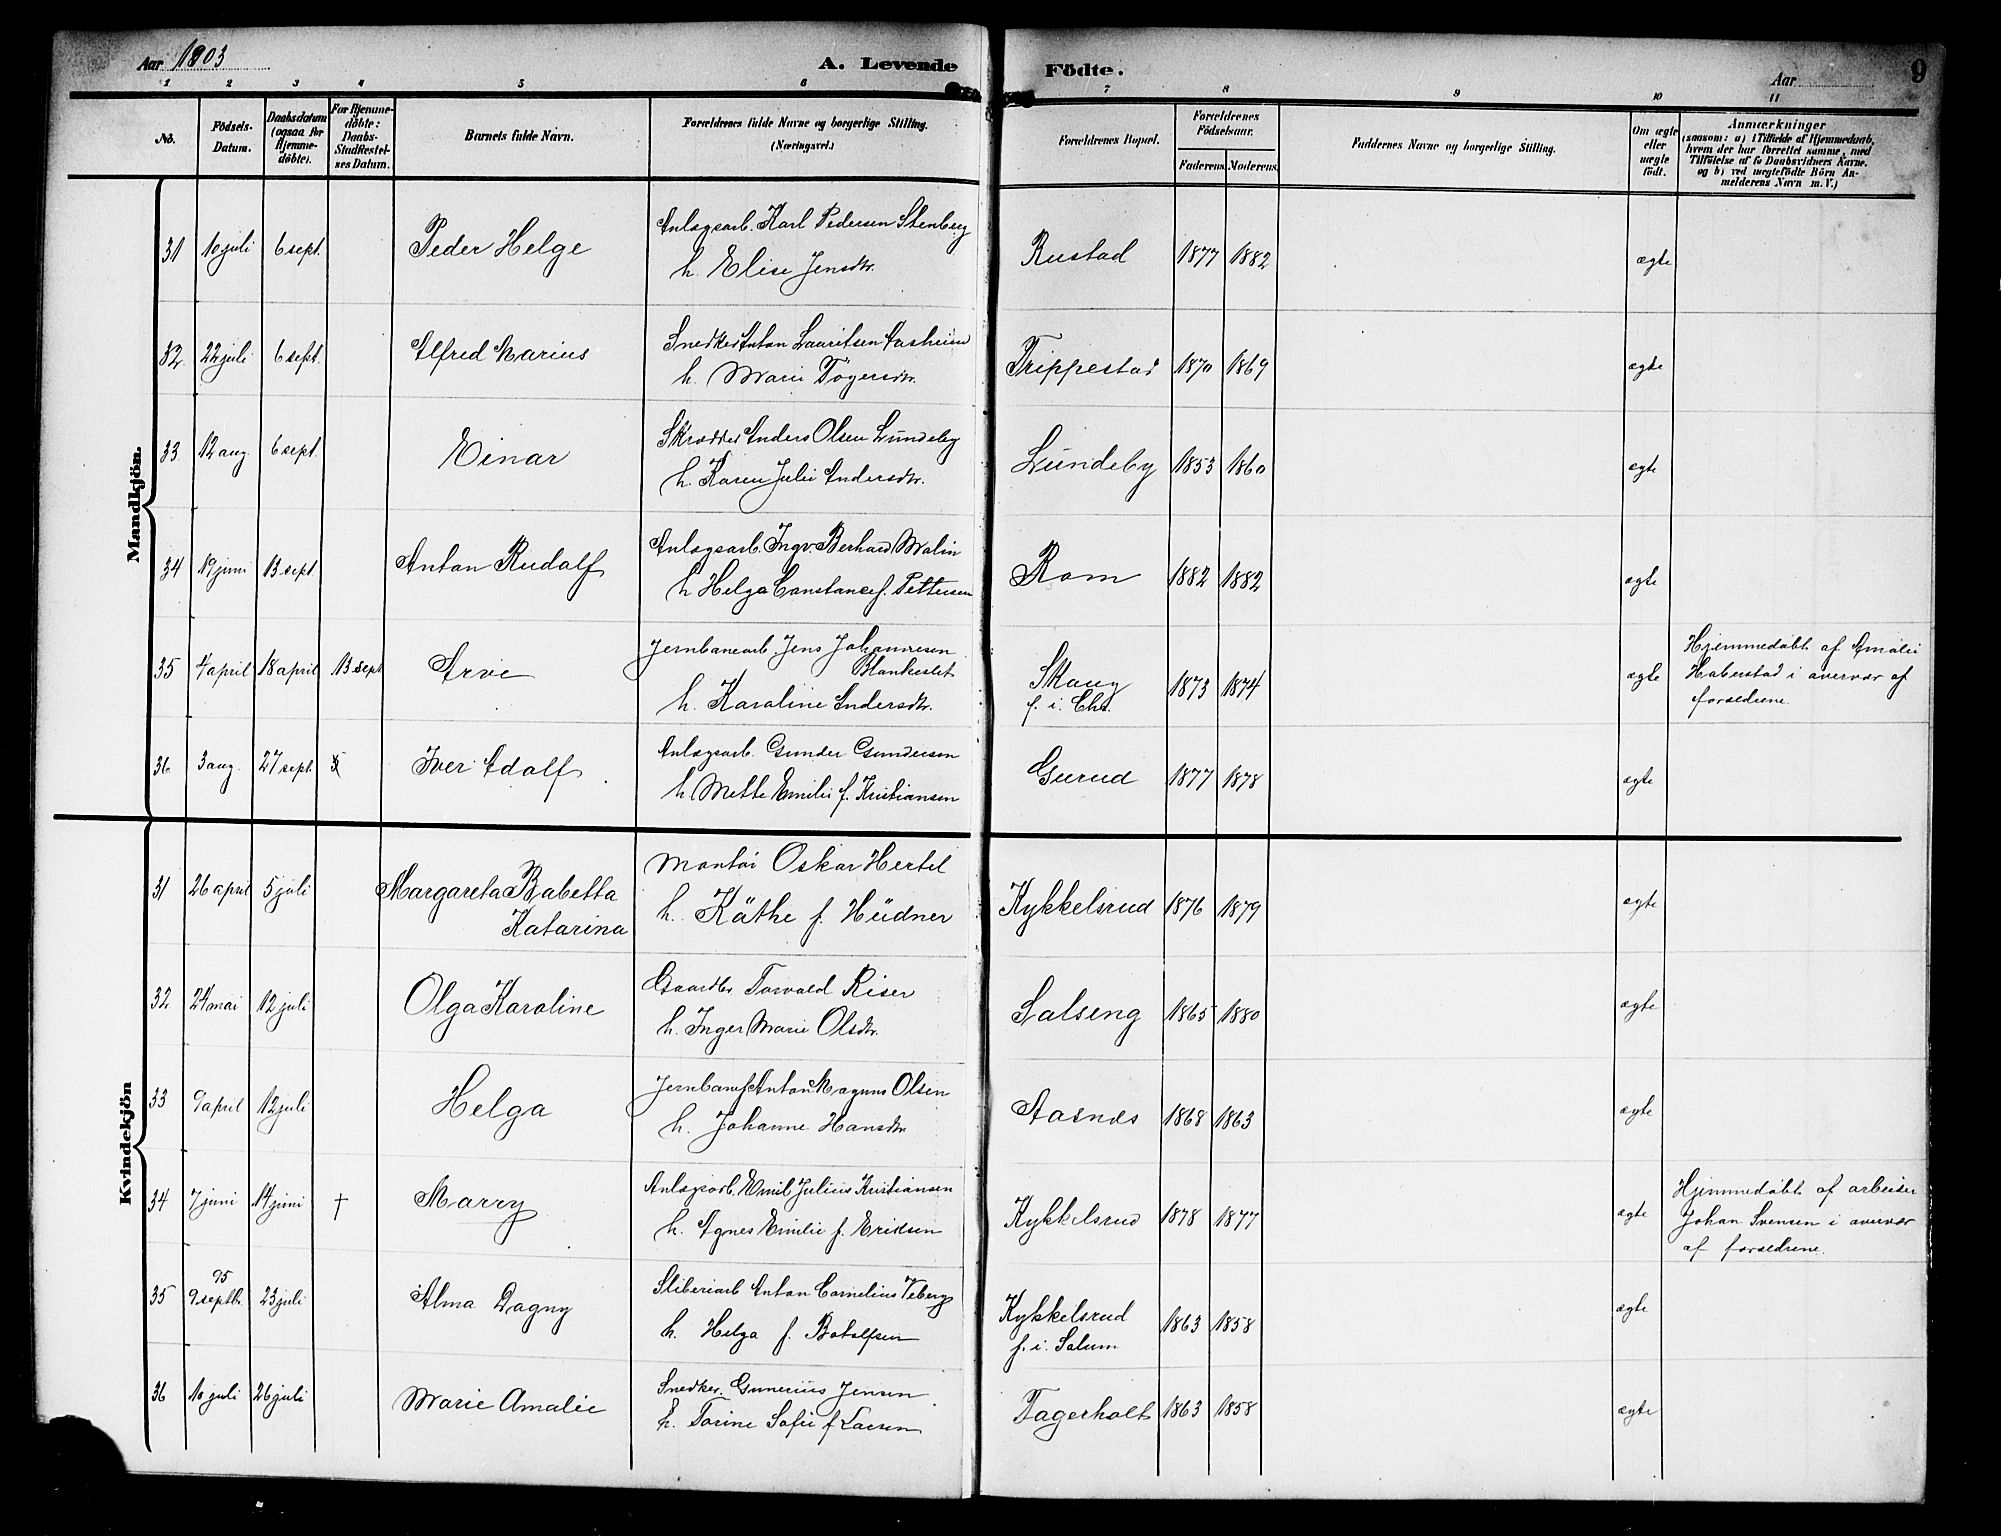 Aar 1903
A. Levende Födte.
Aar
9
1 2 3 4 5 6 7 8 9 10 11
No.
Födsels-Datum.
Daabsdatum (ogsaa for Hjemme-döbte).
For Hjemme-döbte: Daabs-Stadfæstel-ses Datum.
Barnets fulde Navn.
Forældrenes fulde Navne og borgerlige Stilling. (Næringsvei.)
Forældrenes Bopæl.
Forældrenes Födselsaar.
Faderens. Moderens.
Faddernes Navne og borgerlige Stilling.
Om ægte eller uægte födt.
Anmærkninger
(saasom: a) i Tilfælde af Hjemmedaab, hvem der har forrettet samme, med Tilföielse af to Daabsvidners Navne. og b) ved uægtefödte Börn An-melderens Navn m. V.)
Mandkjön.
31 10 juli 6 sept. Peder Helge Anlægsarb. Karl Pedersen Stenberg Rustad 1877 1882 ægte
h. Elise Jensdtr.
32. 22 juli 6 sept. Alfred Marius Snedker Anton Lauritsen Aasheim Trippestad 1870 1869 ægte
h. Marie Tögersdtr.
33. 12 aug. 6 sept. Einar Skrædder Anders Olsen Lundeby Lundeby 1853 1860 ægte
h. Karen Julie Andersdtr.
34 19 juni 13 sept. Anton Rudolf Anlægsarb. Ingv. Berhard Malin Rom 1882 1882 ægte
h Helga Constance f. Pettersen
35 4 april 18 april 13 sept Arve Jernbanearb Jens Johannesen Skaug 1873 1874 ægte Hjemmedöbt af Amalie
f. i. Chr. Haberstad i overvær af
h. Karoline Andersdtr. forældrene.
36 3 aug. 27 sept. Iver Adolf Anlægsarb. Gunder Gundersen Gurud 1877 1878 ægte
h. Mette Emilie f. Kristiansen
Kvindekjön
31 26 april 5 juli Margareta Babetta Montör Oskar Hertel Kykkelsrud 1876 1879 ægte
Katarina h. Käthe f. Hüdner
32 24 mai 12 juli Olga Karoline Gaardbr Torvald Riser Salseng 1865 1880 ægte
h. Inger Marie Olsdtr.
33 9 april 12 juli Helga Jernbanef Anton Magnus Olsen Aasnes 1868 1863 ægte
h. Johanne Hansdtr
34 7 juni 14 juni † Marry Anlægsarb. Emil Julius Kristiansen Kykkelsrud 1878 1877 ægte Hjemmedöbt af arbeider
h. Agnes Emilie f. Eriksen Johan Svensen i overvær
af forældrene.
35 9 septb. 95 23 juli Alma Dagny Sliberiarb Anton Cornelius Veberg Kykkelsrud 1863 1858 ægte
h. Helga f. Botolfsen f. i. Solum
36 10 juli 26 juli Marie Amalie Snedker. Gunerius Jensen Fagerholt 1863 1858 ægte
h. Torine Sofie f Larsen